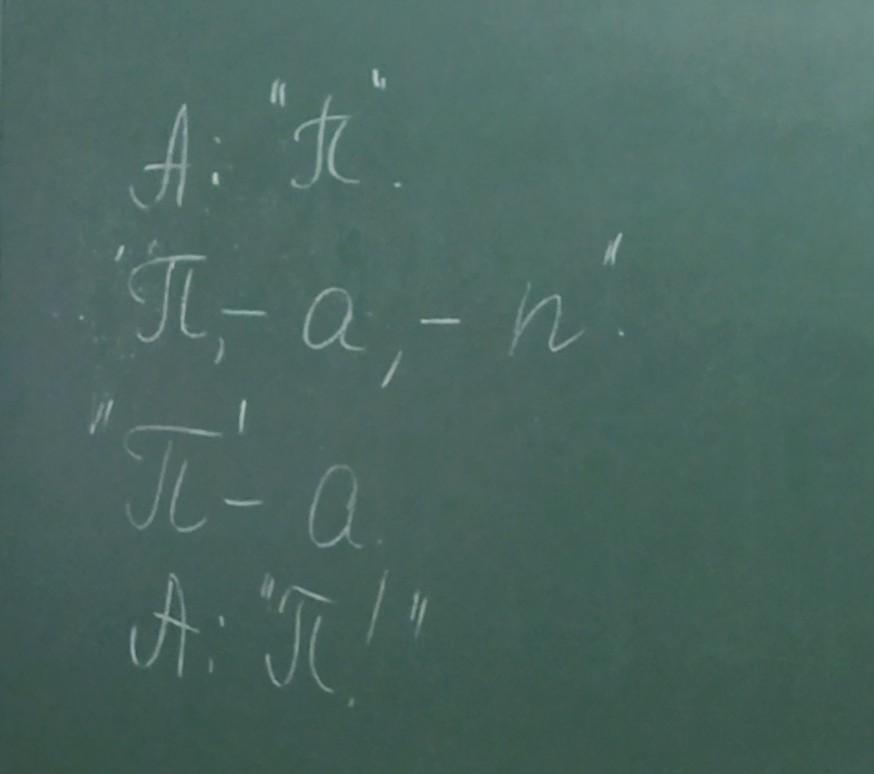 А: "П".
"П, - а, - п".
"П" - а.
А: "П!"